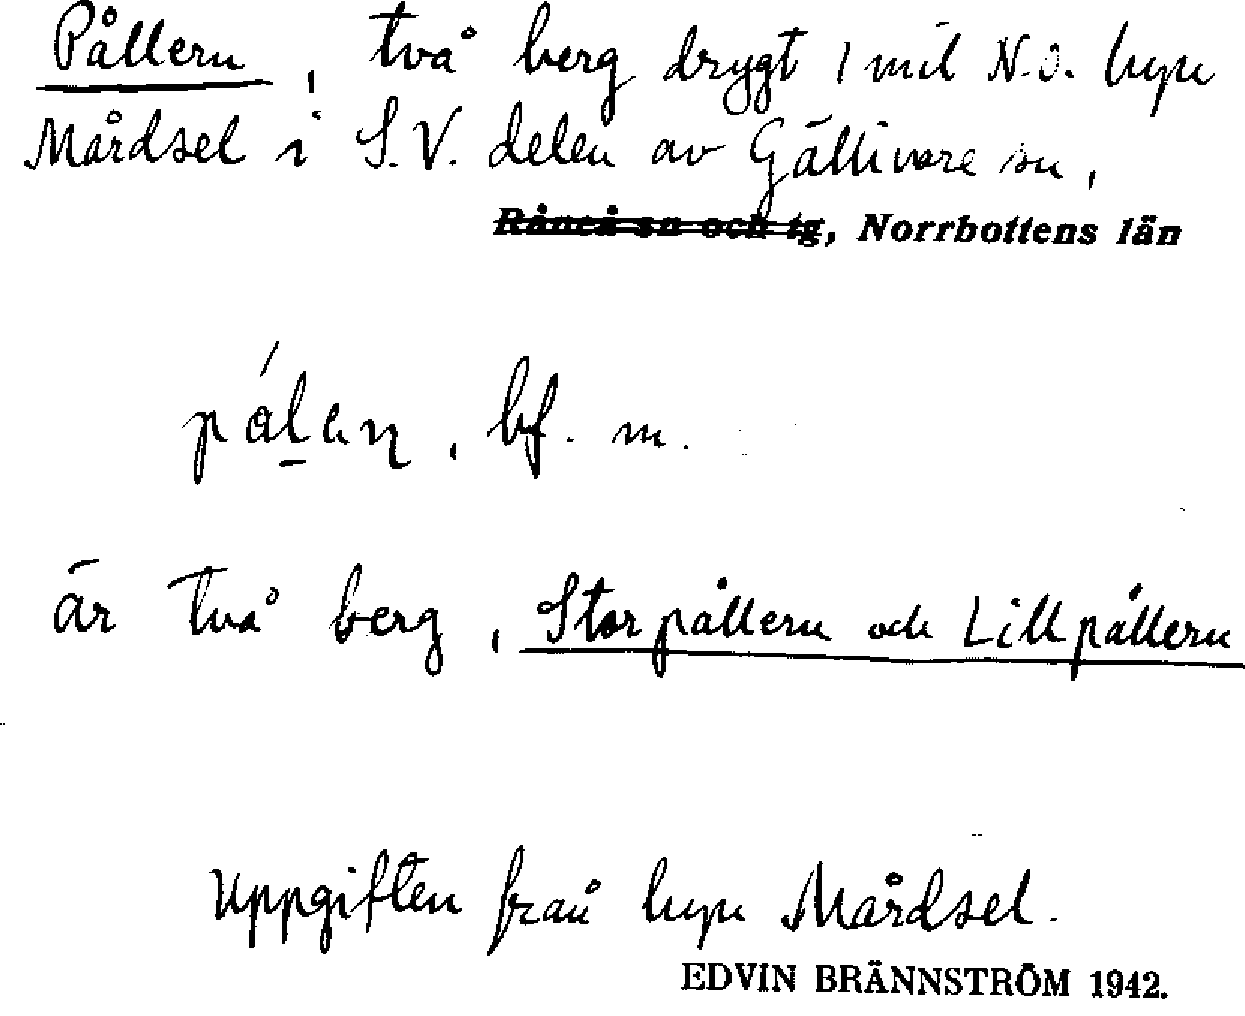 Pållern, två berg drygt 1 mil N.ö. byn
Mårdsel i S.V. delen av Gällivare sn,
Råneå sn och tg, Norrbottens län
pålan, bf. m.
är två berg, Storpållern och Lillpållern
Uppgiften från byn Mårdsel.
EDVIN BRÄNNSTRÖM 1942.